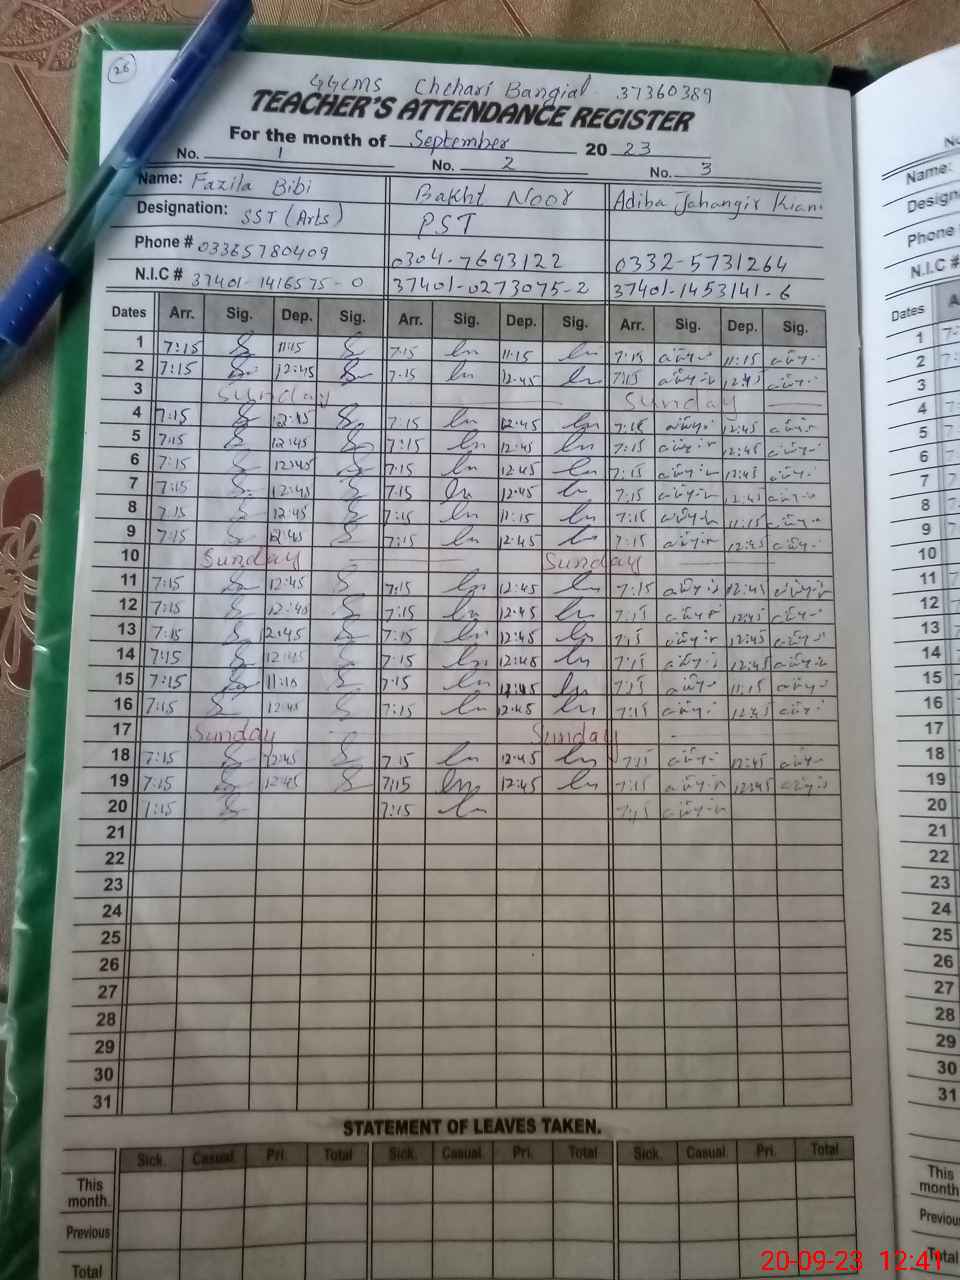 26
GGCMS Chehari Bangial. 37360389
TEACHER'S ATTENDANCE REGISTER
For the month of September 20 23
No. 1 No. 2 No. 3
Name: Fazila Bibi Bakht Noor Adiba Jahangir Kiani
Designation: SST (Arts) PST
Phone # 03365780409 0304-7693122 0332-5731264
N.I.C # 37401-1416575-0 37401-0273075-2 37401-1453141-6
Dates Arr. Sig. Dep. Sig. Arr. Sig. Dep. Sig. Arr. Sig. Dep. Sig.
1 7:15 11:15 7:15 11:15 7:15 11:15
2 7:15 12:45 7:15 12:45 7:15 12:45
3 Sunday Sunday
4 7:15 12:45 7:15 12:45 7:15 12:45
5 7:15 12:45 7:15 12:45 7:15 12:45
6 7:15 12:45 7:15 12:45 7:15 12:45
7 7:15 12:45 7:15 12:45 7:15 12:45
8 7:15 12:45 7:15 11:15 7:15 11:15
9 7:15 12:45 7:15 12:45 7:15 12:45
10 Sunday Sunday
11 7:15 12:45 7:15 12:45 7:15 12:45
12 7:15 12:45 7:15 12:45 7:15 12:45
13 7:15 12:45 7:15 12:45 7:15 12:45
14 7:15 12:45 7:15 12:45 7:15 12:45
15 7:15 11:15 7:15 12:45 7:15 11:15
16 7:15 12:45 7:15 12:45 7:15 12:45
17 Sunday Sunday
18 7:15 12:45 7:15 12:45 7:15 12:45
19 7:15 12:45 7:15 12:45 7:15 12:45
20 7:15 7:15 7:15
21
22
23
24
25
26
27
28
29
30
31
STATEMENT OF LEAVES TAKEN.
Sick. Casual. Pri. Total Sick. Casual. Pri. Total Sick. Casual. Pri. Total
This month.
Previous
Total
20-09-23 12:41